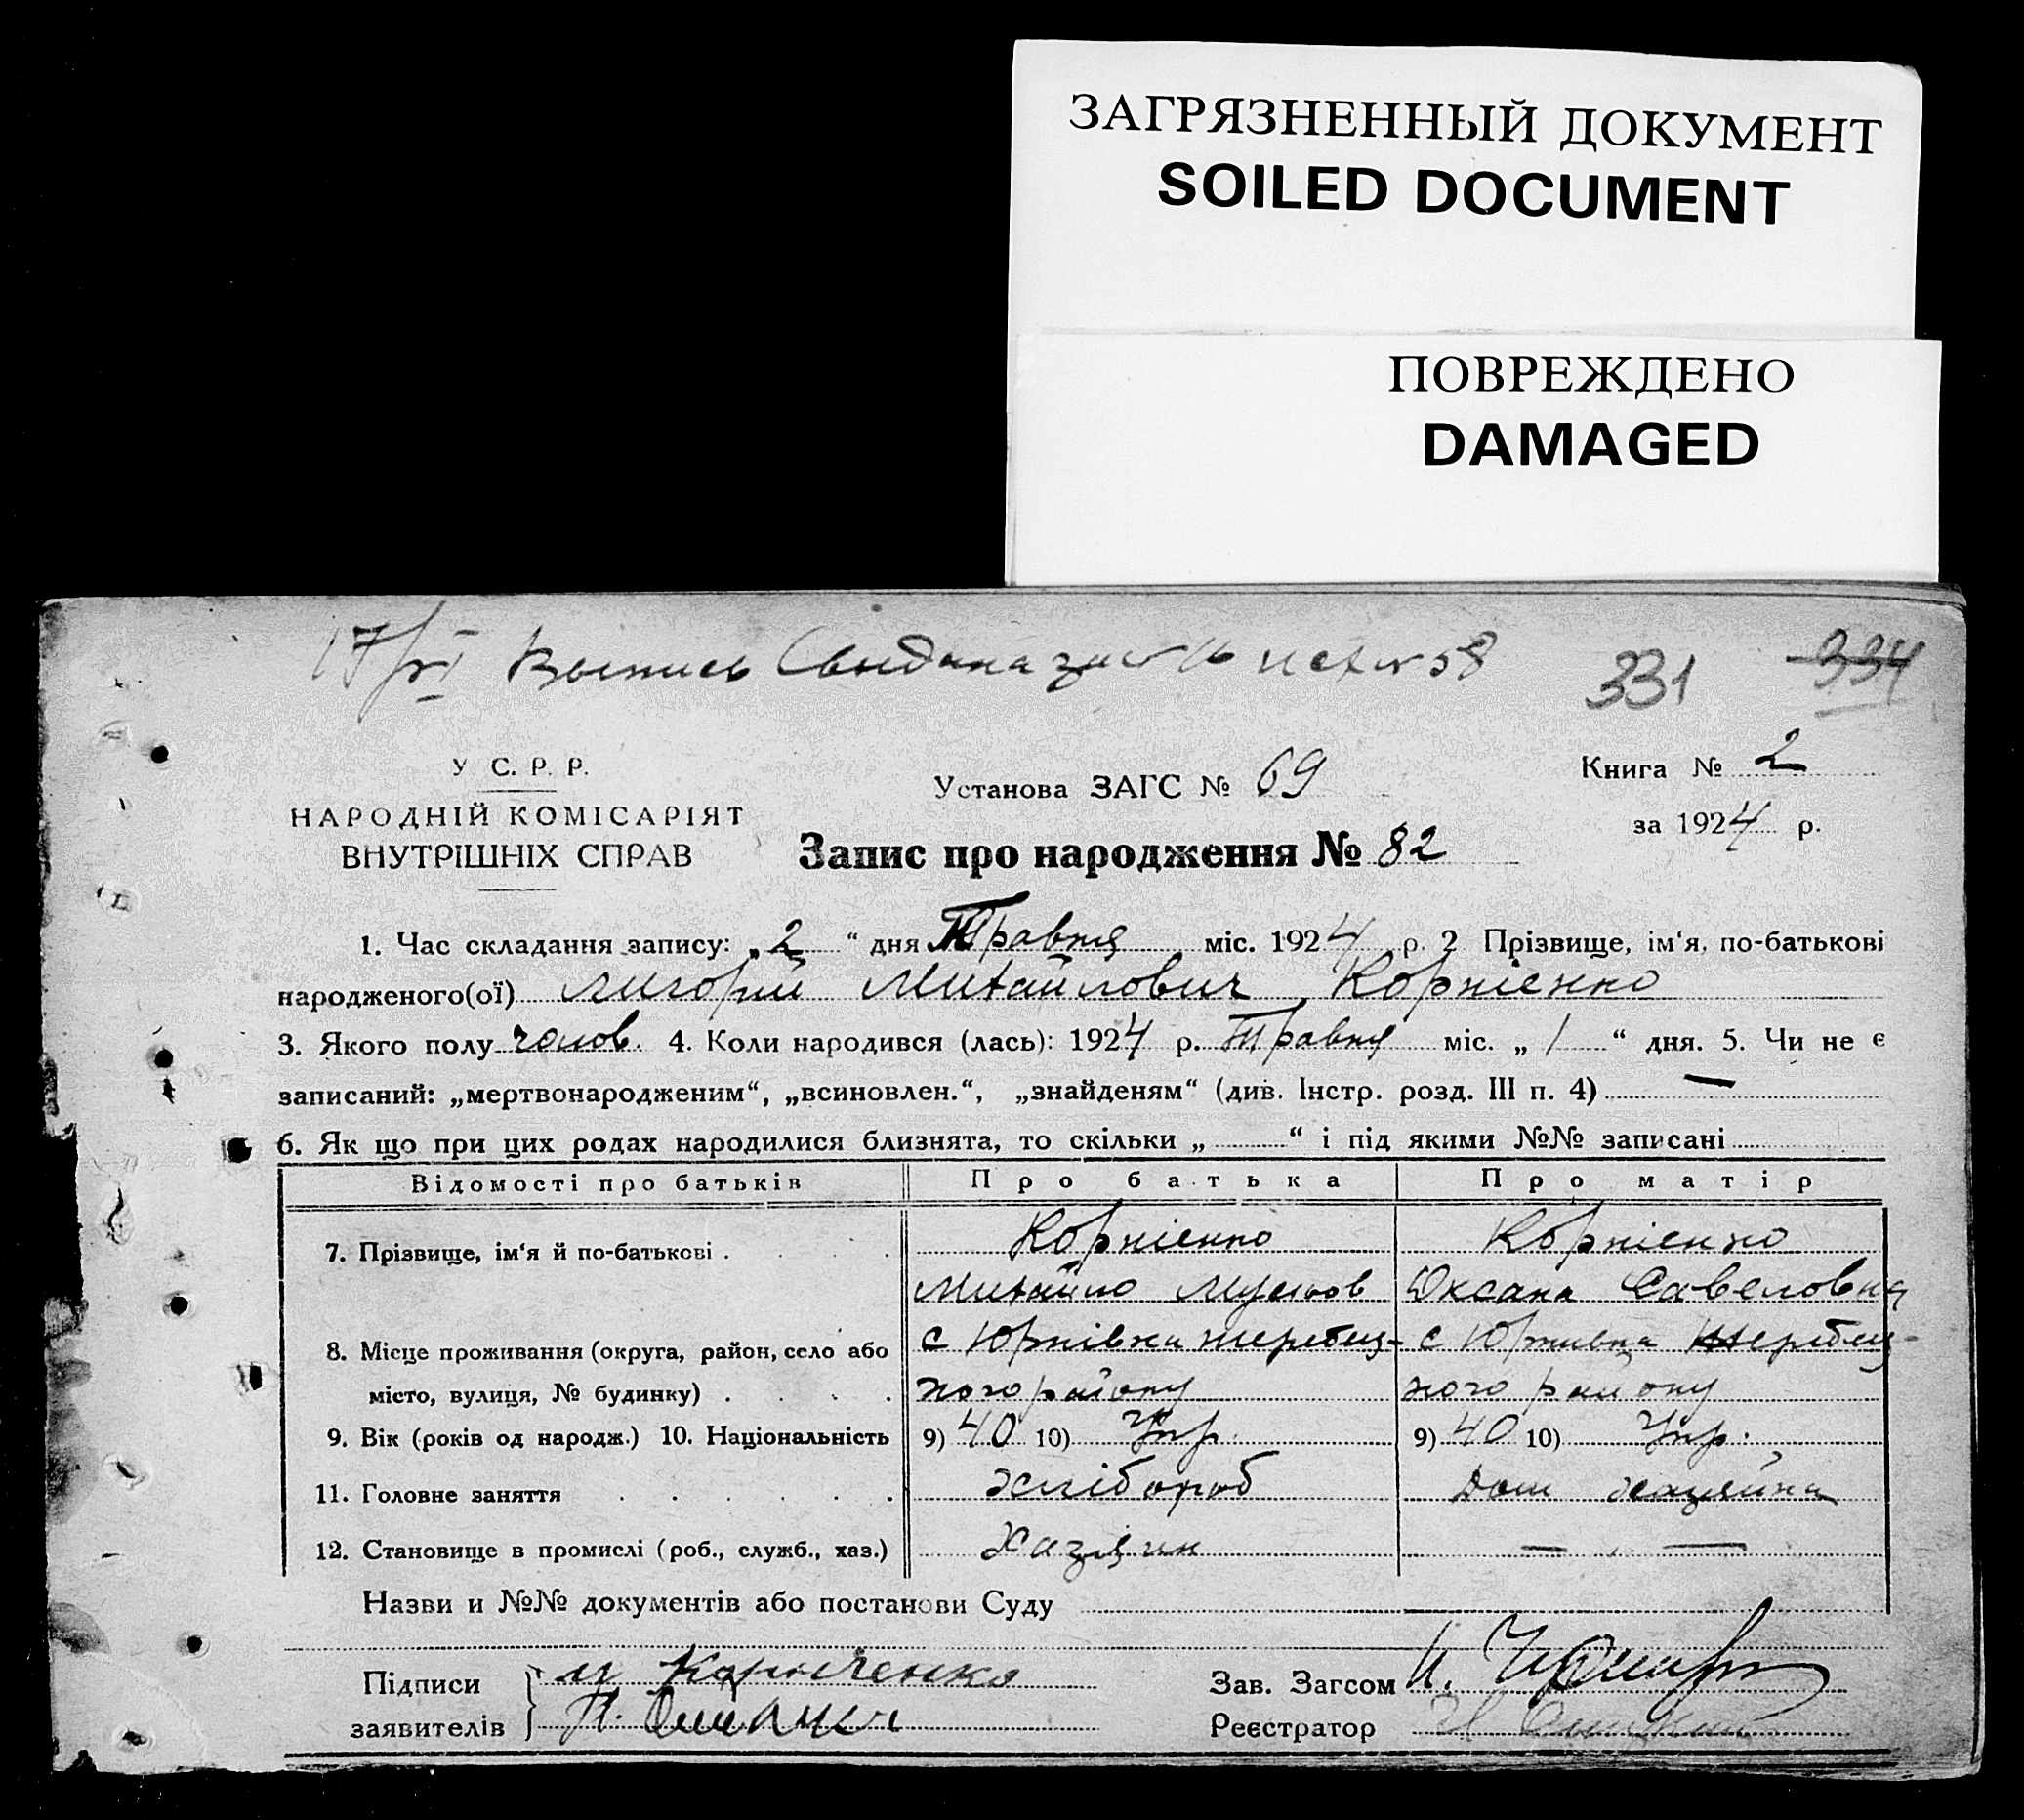 ЗАГРЯЗНЕННЫЙ ДОКУМЕНТ
SOILED DOCUMENT
ПОВРЕЖДЕНО
DAMAGED
Выпись
331 334
У С. Р. Р.
НАРОДНІЙ КОМІСАРІЯТ
ВНУТРІШНІХ СПРАВ
Установа ЗАГС № 69
Книга № 2
за 1924 р.
Запис про народження № 82
1. Час складання запису: „2“ дня Травня міс. 1924 р. 2 Прізвище, ім‘я, по-батькові
народженого(ої) Лигорій Михайлович Корнієнко
3. Якого полу чолов. 4. Коли народився (лась): 1924 р. Травня міс. „1“ дня. 5. Чи не є
записаний: „мертвонародженим“, „всиновлен.“, „знайденям“ (див. Інстр. розд. III п. 4) —
6. Як що при цих родах народилися близнята, то скільки „ “ і під якими №№ записані
Відомості про батьків Про батька Про матір
7. Прізвище, ім‘я й по-батькові . Корнієнко Корнієнко
Михайло Мусіов Оксана Савеловна
8. Місце проживання (округа, район, село або с Юрківка жеребец- с Юрківка жеребец-
місто, вулиця, № будинку) . кого району кого району
9. Вік (років од народж.) 10. Національність 9) 40 10) Укр. 9) 40 10) Укр.
11. Головне заняття Хлібороб Дом хазяйка
12. Становище в промислі (роб., служб., хаз.) Хазяин — —
Назви и №№ документів або постанови Суду
Підписи
заявителів
Зав. Загсом
Реєстратор